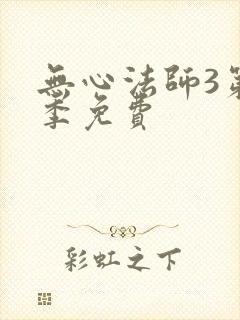 無心法師3第
季免費
彩虹之下